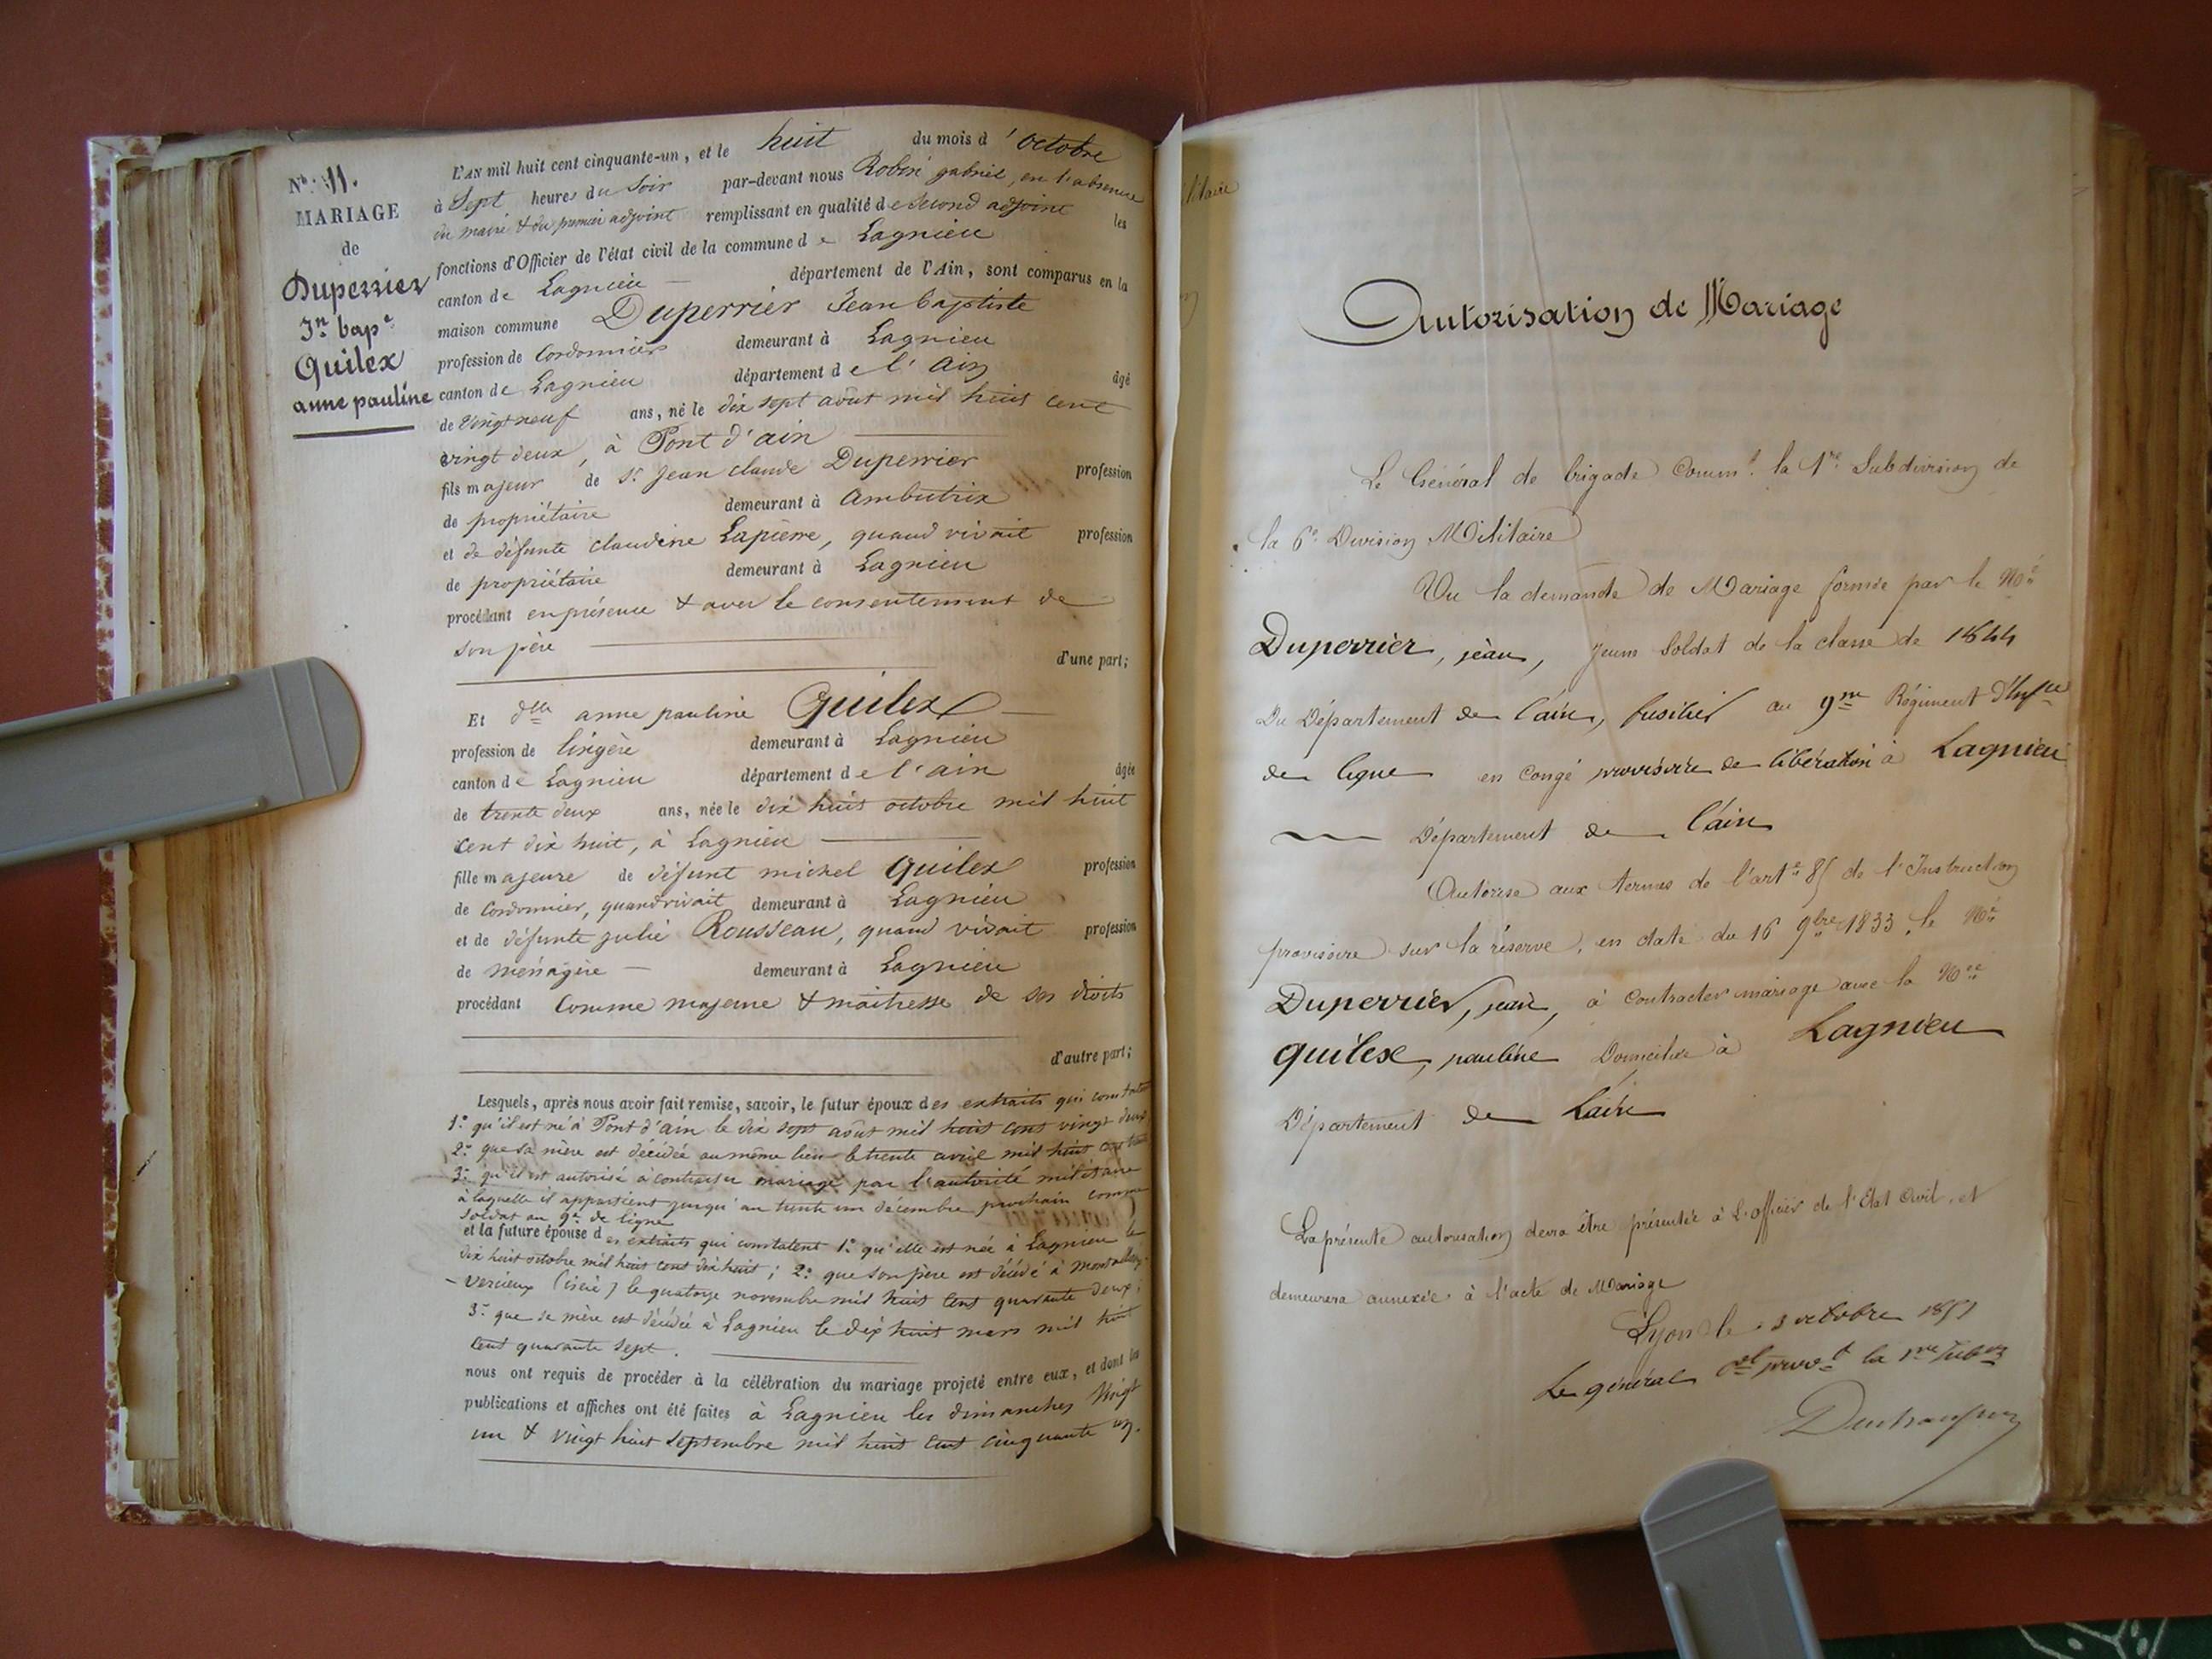 N° 11.
MARIAGE
de
Duperrier
Jn bape
Quilex
anne pauline
L'AN mil huit cent cinquante-un, et le huit du mois d'octobre
à Sept heures du Soir par-devant nous Robin gabriel, en l'absence
du maire & du premier adjoint remplissant en qualité de second adjoint les
fonctions d'Officier de l'état civil de la commune de Lagnieu
canton de Lagnieu département de l'Ain, sont comparus en la
maison commune Duperrier Jean baptiste
profession de Cordonnier demeurant à Lagnieu
canton de Lagnieu département de l'Ain âgé
de vingt neuf ans, né le dix sept août mil huit cent
vingt deux, à Pont d'ain
fils majeur de Sr Jean claude Duperrier profession
de propriétaire demeurant à Ambutrix
et de défunte claudine Lapierre, quand vivait profession
de propriétaire demeurant à Lagnieu
procédant en présence & avec le consentement de
son père
d'une part;
Et dlle anne pauline Quilex
profession de lingère demeurant à Lagnieu
canton de Lagnieu département de l'ain âgée
de trente deux ans, née le dix huit octobre mil huit
cent dix huit, à Lagnieu
fille majeure de défunt michel Quilex profession
de Cordonnier, quand vivait demeurant à Lagnieu
et de défunte julie Rousseau, quand vivait profession
de ménagère demeurant à Lagnieu
procédant comme majeure & maitresse de ses droits
d'autre part;
Lesquels, après nous avoir fait remise, savoir, le futur époux des extraits qui constatent
1° qu'il est né à Pont d'ain le dix sept août mil huit cent vingt deux
2° que sa mère est décédée au même lieu le trente avril mil huit cent
3° qu'il est autorisé à contracter mariage par l'autorité militaire
à laquelle il appartient jusqu'au trente un décembre prochain comme
soldat au 9e de ligne
et la future épouse des extraits qui constatent 1° qu'elle est née à Lagnieu le
dix huit octobre mil huit cent dix huit; 2° que son père est décédé à
vercieux (isère) le quatorze novembre mil huit cent quarante deux;
3° que sa mère est décédée à Lagnieu le dix huit mars mil huit
cent quarante sept.
nous ont requis de procéder à la célébration du mariage projeté entre eux, et dont les
publications et affiches ont été faites à Lagnieu les dimanches vingt
un & vingt huit septembre mil huit cent cinquante un.
Autorisation de Mariage
Le Général de brigade Commt la 1re Subdivision de
la 6e Division Militaire
Vu la demande de Mariage formée par le Né
Duperrier, jean, Jeune Soldat de la classe de 1844
Du Département de l'ain, fusilier au 9me Régiment d'Infie
de ligne en Congé provisoire de libération à Lagnieu
Département de l'ain
Autorise aux termes de l'arte 85 de l'Instruction
provisoire sur la réserve, en date du 16 9bre 1833, le Né
Duperrier, jean, à Contracter mariage avec la Née
quilex, pauline Domiciliée à Lagnieu
Département de l'ain
La présente autorisation devra être présentée à L'officier de l'Etat Civil, et
demeurera annexée à l'acte de Mariage
Lyon le 3 octobre 1851
Le général la 1re